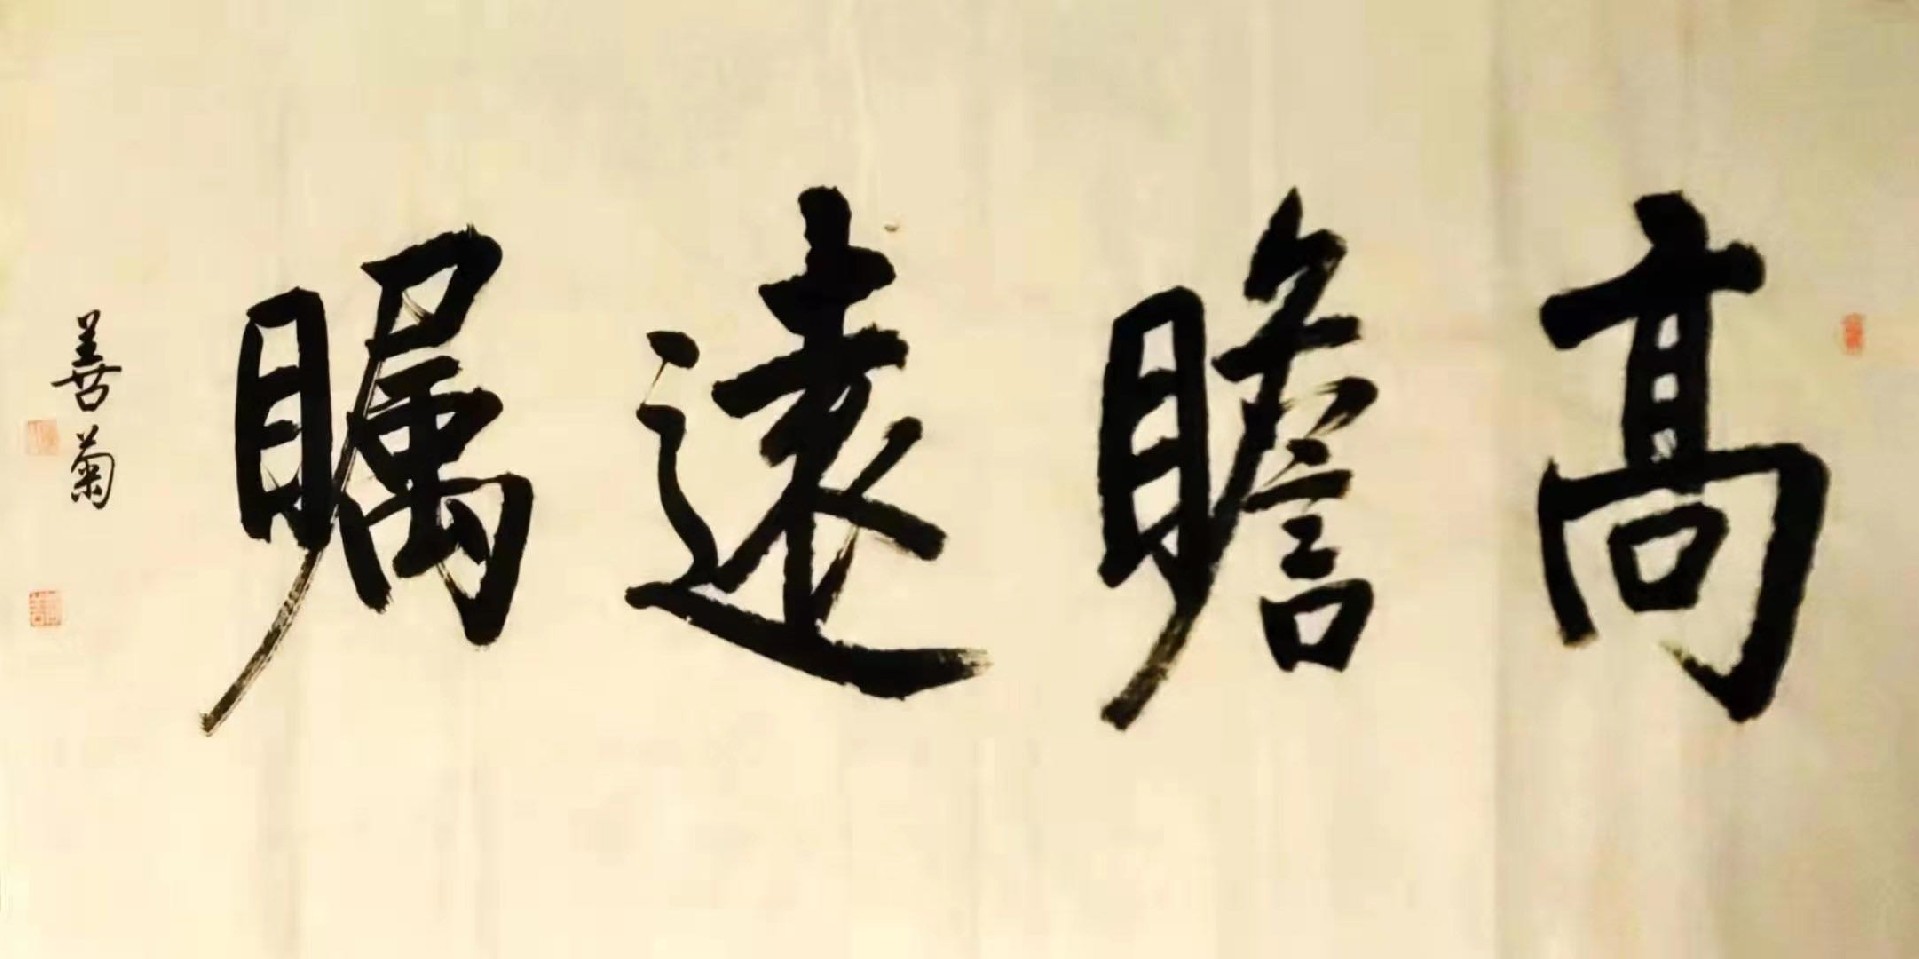 髙瞻遠矚
善菊